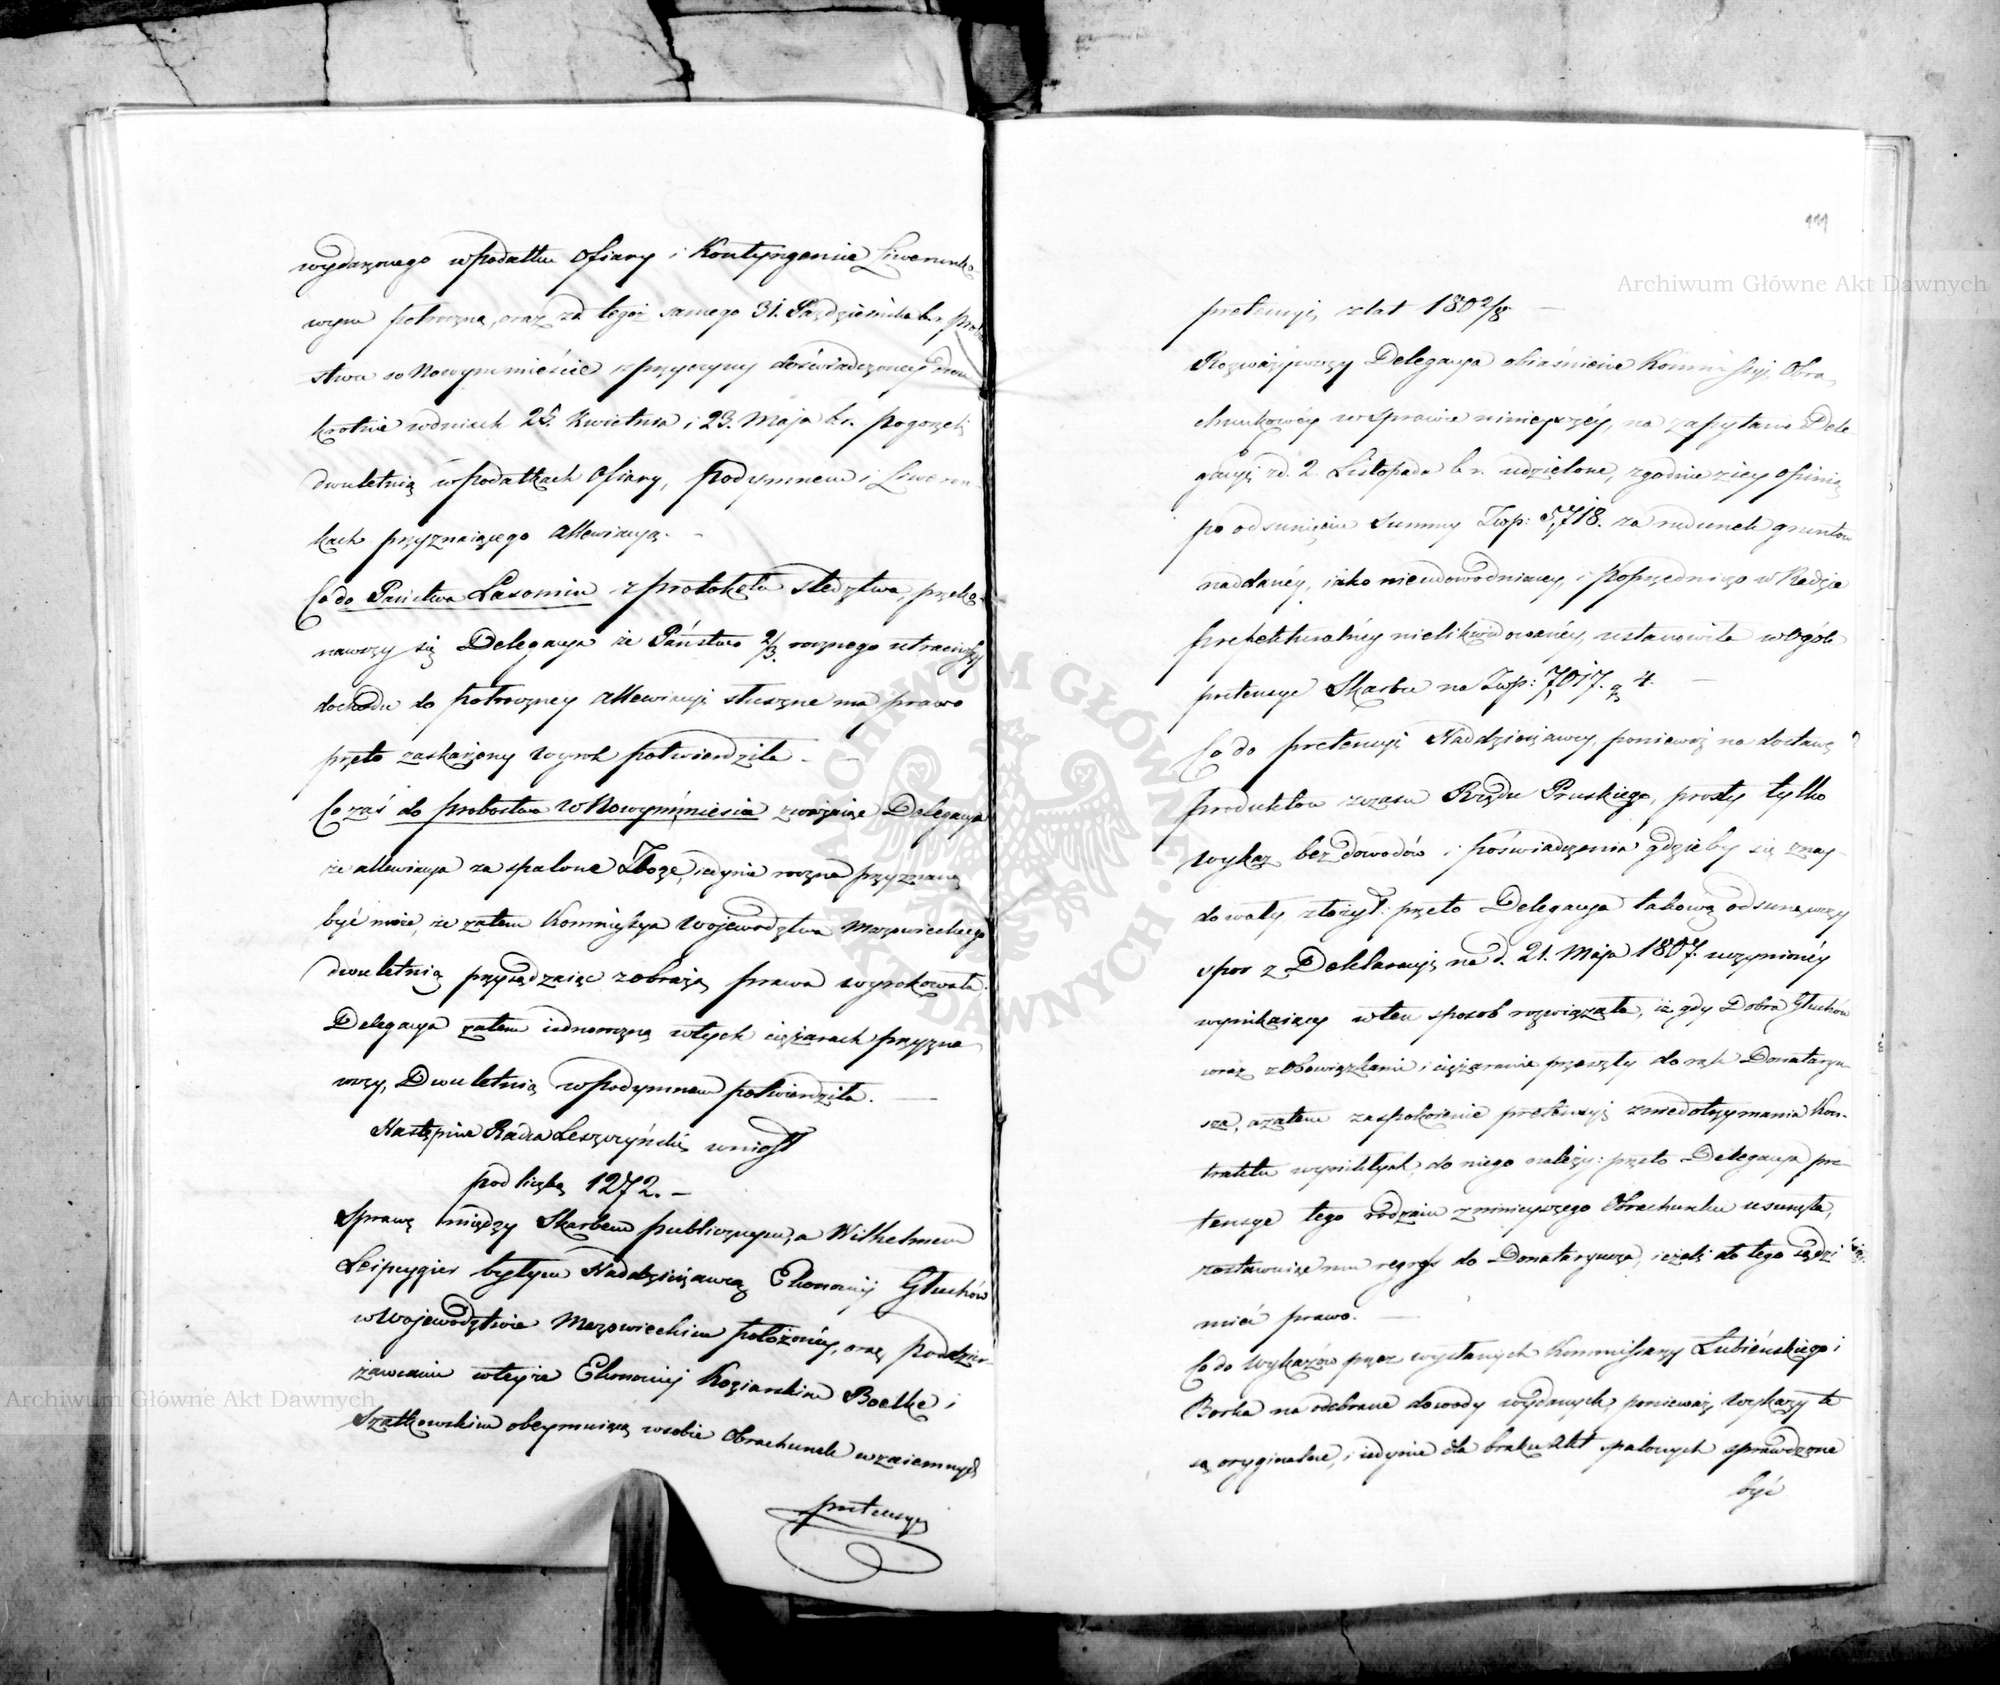 wydanego w Podatku Ofiary i Kontyngensie Liwerunko-
wym półroczną, oraz zd tegoż samego 31. Października b.r. Probo
stwu w Nowymmieście z przyczyny doświadczoney dwu
krotnie w dniach 25. Kwietnia i 23. Maja b.r. pogorzeli
dwuletnią w podatkach Ofiary, Podymnem i Liwerun-
kach przyznaiącego allewiacyą. –
Co do Państwa Lasomin z protokółu śledztwa, przeko-
nawszy się Delegacya że Państwo 2/3 rocznego utraciwszy
dochodu do półroczney allewiacyi słuszne ma prawo
przeto zaskarżony wyrok potwierdziła. –
Co zaś do Probostwa w Nowymmieście zważaiąc Delegacya
że allewiacya za spalone Zboże, iedynie roczna przyznaną
być może, że zatem Kommissya Województwa Mazowieckiego
dwuletnią przysądzaiąc z obrazą prawa wyrokowała.
Delegacya zatem iednoroczną w tych ciężarach przyzna
wszy, Dwuletnią w Podymnem potwierdziła. –
Następnie Radca Leszczyński wniósł
pod liczbą 1272. –
Sprawę między Skarbem publicznym, a Wilhelmem
Leipcygier byłym Naddzierżawcą Ekonomij Głuchów
w Województwie Mazowieckim położoney, oraz poddzier-
żawcami w teyże Ekonomij Koziarskim Boelke i
Szatkowskim obeymuiącą w sobie Obrachunek wzaiemnych
pretensyi
111
pretensyi z lat 1802/8. –
Rozważywszy Delegacya obiaśnienie Kommissyi Obra
chunkowéy w sprawie ninieyszéy, na zapytanie Dele-
gacyi zd. 2. Listopada b.r. udzielone, zgodnie z iey opinią
po odsunięciu Summy Złp: 5,718. za rudunek gruntów
naddanéy, iako nieudowodnioney, i poprzednio w Radzie
prefekturalnéy nielikwidowanéy, ustanowiła w ogóle
pretensye Skarbu na Złp: 7,017. g 4. –
Co do pretensyi Naddzierżawcy, ponieważ na dostawę
produktów z czasu Rządu Pruskiego, prosty tylko
wykaz bez dowodów i poświadczenia gdzieby się znay-
dowały złożył: przeto Delegacya takową odsunąwszy
spór z Deklaracyi na d. 21. Maja 1807. uczynionéy
wynikaiący w ten sposób rozwiązała, iż gdy Dobra Głuchów
wraz z obowiązkami i ciężarami przeszły do rąk Donataryu-
sza, a zatem zaspokoienie pretensyi z niedotrzymania Kon-
traktu wynikłych, do niego należy: przeto Delegacya pre-
tensye tego rodzaiu z ninieyszego Obrachunku usunęła,
zostawuiąc mu regres do Donataryusza, ieżeli do tego sądzi
mieć prawo. –
Co do Wykazów przez wysłanych Kommissarzy Łubieńskiego i
Borka na odebrane dowody wydanych ponieważ wykazy te
są oryginalne, i iedynie dla braku Akt spalonych sprawdzone
być
Archiwum Główne Akt Dawnych
Archiwum Główne Akt Dawnych
ARCHIWUM GŁÓWNE AKT DAWNYCH